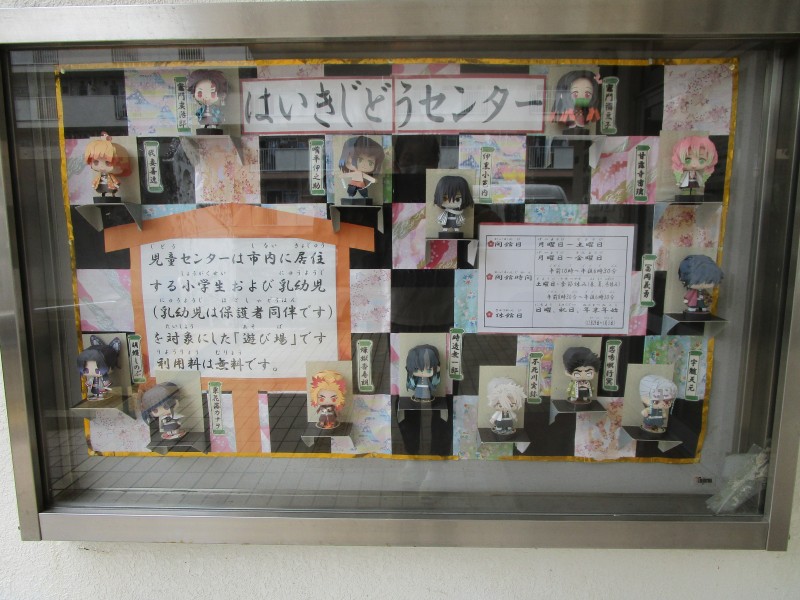 はいきじどうセンター
竈門炭治郎
竈門禰豆子
我妻善逸
嘴平伊之助
伊黒小芭内
甘露寺蜜璃
児童センターは市内に居住
する小学生および乳幼児
(乳幼児は保護者同伴です)
を対象にした「遊び場」です
利用料は無料です。
開館日
月曜日～土曜日
月曜日～金曜日
開館時間
午前10時～午後6時30分
休館日
日曜、祝日、年末年始
冨岡義勇
胡蝶しのぶ
栗花落カナヲ
煉獄杏寿郎
時透無一郎
不死川実弥
悲鳴嶼行冥
宇髄天元